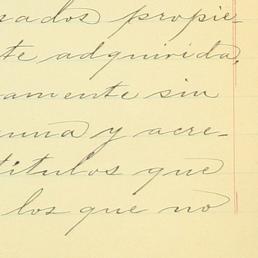 sados propie-
te adquirida,
amente sin
guna y acre-
titulos que
los que no